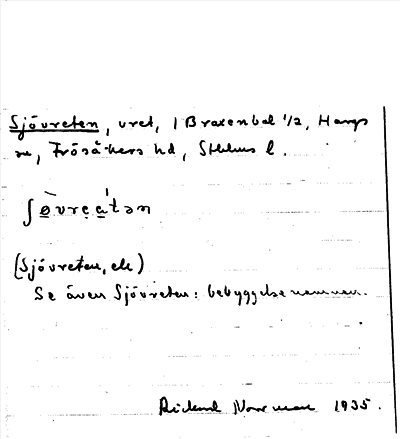 Sjövreten, vret, 1 Braxenbol 1/2, Hargs
sn, Frösåkers hd, Sthlms l.
ʃø̀vreatən
(Sjövreten, ek)
Se även Sjövreten: bebyggelsenamnen.
Rickard Norrman 1935.